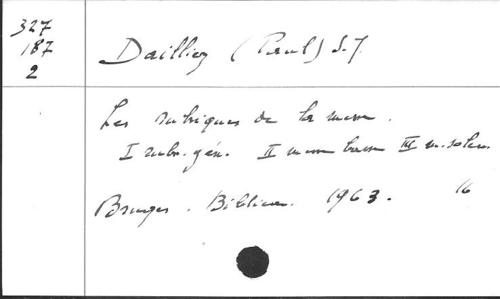 327
187
2
Dailliez (Paul) S. J.
Les rubriques de la messe.
I rubr. gén. II messe basse III m. solen.
Bruges. Biblica. 1963. 16